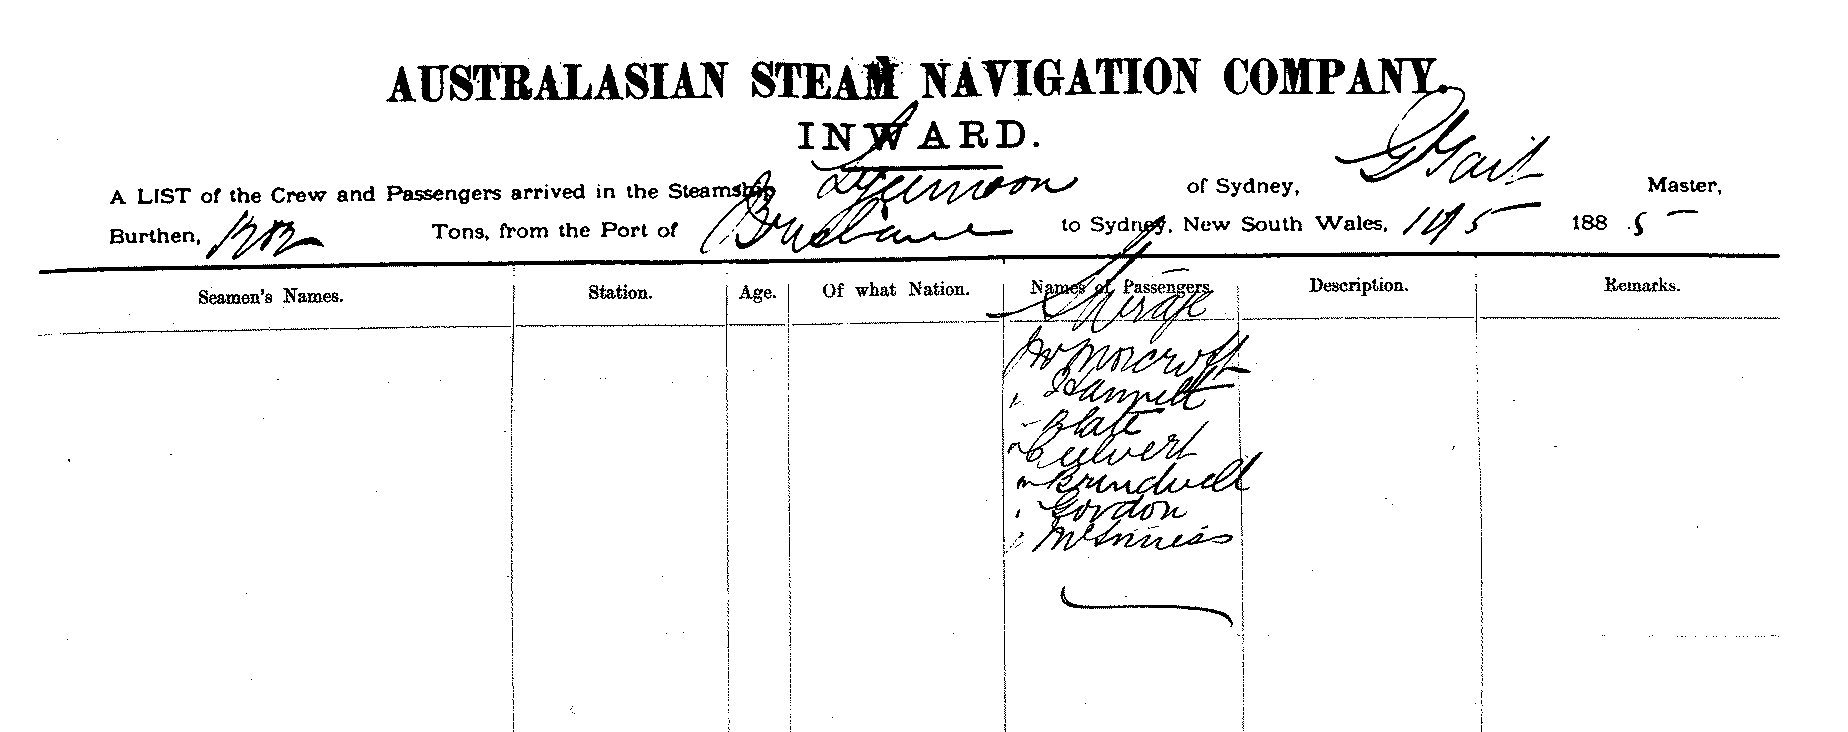 AUSTRALASIAN STEAM NAVIGATION COMPANY.
INWARD.
A LIST of the Crew and Passengers arrived in the Steamship Lyeemoon of Sydney, G Gait Master,
Burthen, 1202 Tons, from the Port of Brisbane to Sydney, New South Wales, 188 5
Seamen's Names. Station. Age. Of what Nation. Names of Passengers. Description. Remarks.
Steerage
Morcroft
Hannett
Blatt
Culvert
Brindwell
Gordon
McInniss